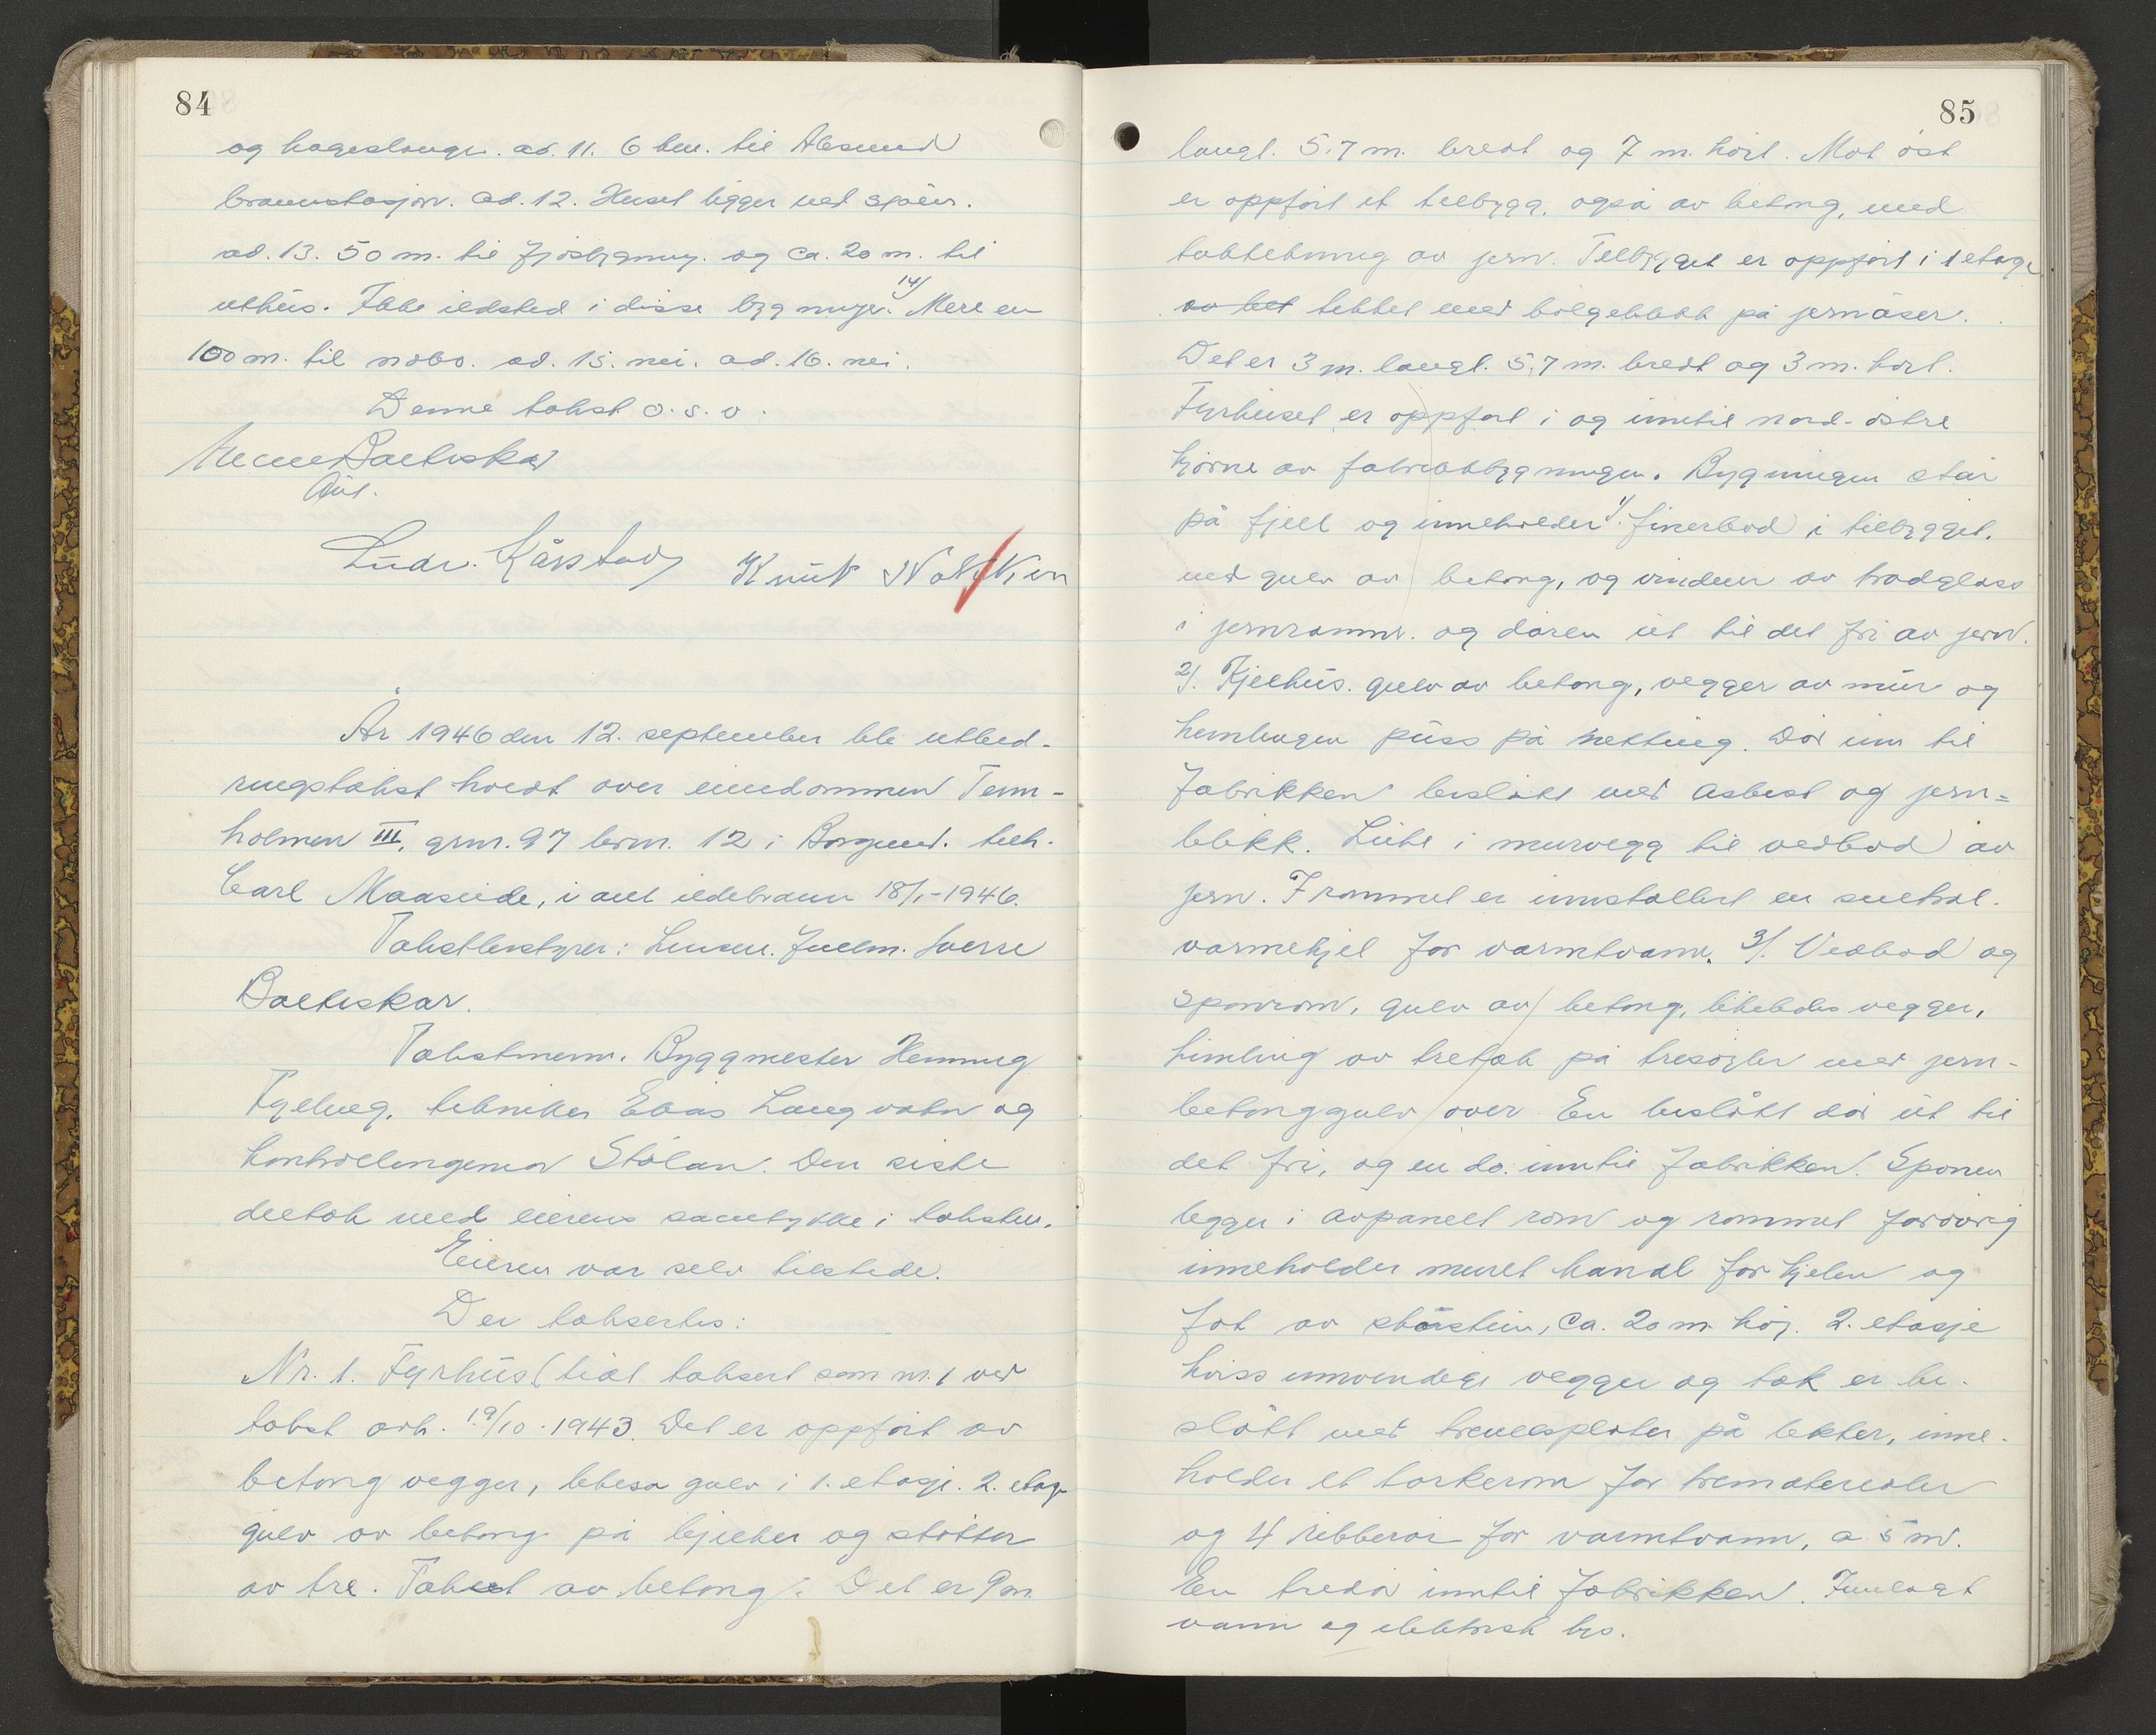 84
og hageslange. ad. 11. 6 km. til Ålesund
brannstasjon. ad. 12. Huset ligger ved sjøen.
ad. 13. 50 m. til fjøsbygning. og ca. 20 m. til
uthus. Ikke ildsted i disse bygninger. 14/ Mere en
100 m. til nabo. ad. 15. nei. ad. 16. nei.
Denne takst o.s.v.
Baltiskar
Ludv. Kårstad Knut Nakken
År 1946 den 12. september ble utbed-
ringstakst holdt over eiendommen Tenn-
holmen III, grnr. 97 brnr. 12 i Borgund. tilh.
Carl Maaseide, i anl ildebrann 18/1-1946.
Takstbestyrer: Lensm. fullm. Sverre
Baltiskar.
Takstmenn. Byggmester Henning
tekniker Elias Langvatn og
kontrollingeniør Stölan. Den siste
deltok med eierens samtykke i taksten.
Eieren var selv tilstede.
Der taksertes:
Nr. 1. Fyrhus (tidl taksert som nr. 1 ved
takst avh. 19/10-1943. Det er oppført av
betong vegger, likesa gulv i 1. etasje. 2. etasje
gulv av betong på bjelker og støtter
av tre. Taket av betong. Det er 9 m.
85
langt. 5.7 m. bredt og 7 m. høit. Mot øst
er oppført et tilbygg, også av betong, med
taktekning av jern. Tilbygget er oppført i 1 etasje
av bet tekket med bølgeblikk på jernåser.
Det er 3 m. langt. 5,7 m. bredt og 3 m. høit.
Fyrhuset er oppført i og inntil nord-østre
hjørne av fabrikkbygningen. Bygningen står
på fjell og inneholder 1/. finerbod i tilbygget.
med gulv av betong, og vinduer av trådglass
i jernramme. og døren ut til det fri av jern.
2/. Kjelhus. gulv av betong, vegger av mur og
himlingen puss på netting. Dør inn til
fabrikken beslått med asbest og jern=
blikk. Luke i murvegg til vedbod av
jern. I rommet er innstallert en sentral-
varmekjel for varmtvann. 3/. Vedbod og
sponrom, gulv av betong, likeledes vegger,
himling av tretak på tresøyler med jern-
betonggulv over. En beslått dør ut til
det fri, og en do. inntil fabrikken. Sponen
ligger i avpanelt rom og rommet forøvrig
inneholder muret kanal for kjelen og
fot av skorstein, ca. 20 m. høj. 2. etasje
hviss innvendige vegger og tak er be-
slått med treullsplater på lekter, inne-
holder et tørkerom for trematerialer
og 4 ribberør for varmtvann, a 5 m.
En tredør inntil fabrikken. Innlagt
vann og elektrisk lys.